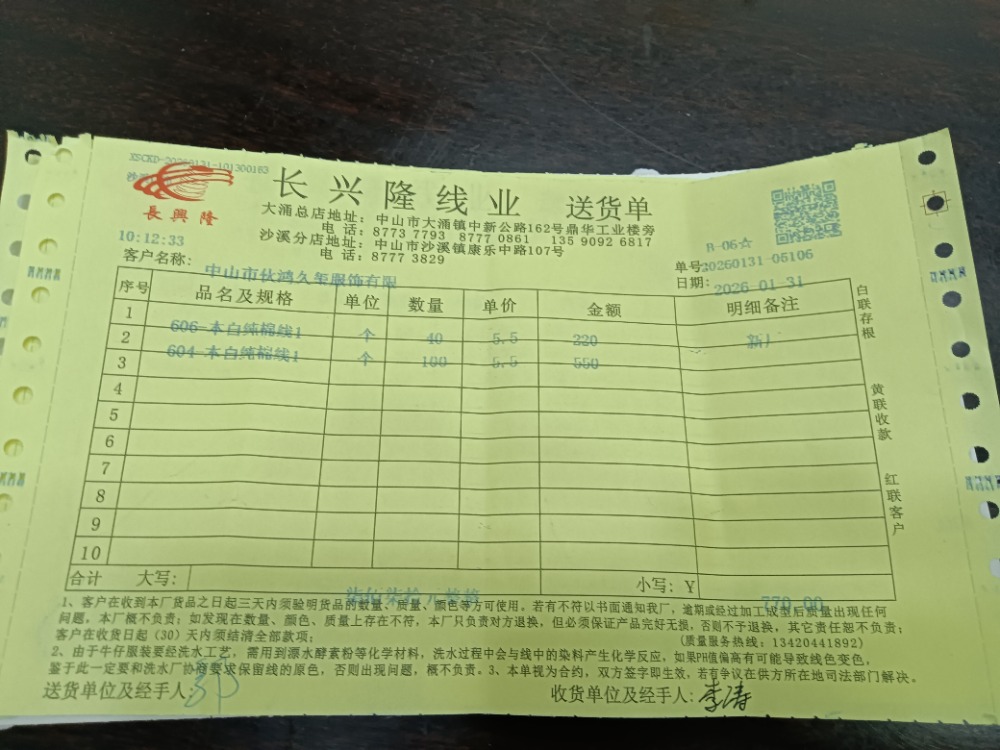 XSCKD-20260131-101300163
長興隆
长兴隆线业 送货单
大涌总店地址：中山市大涌镇中新公路162号鼎华工业楼旁
电 话：8773 7793 8777 0861 135 9092 6817
沙溪分店地址：中山市沙溪镇康乐中路107号
电 话：8777 3829
10:12:33
B-06☆
单号:20260131-05106
客户名称：中山市伙鸿久玺服饰有限
日期：2026-01-31
序号 品名及规格 单位 数量 单价 金额 明细备注
1
606-本白纯棉线1 个 40 5.5 220
2
604-本白纯棉线1 个 100 5.5 550
3
4
5
6
7
8
9
10
白联存根
黄联收款
红联客户
合计 大写： 柒佰柒拾元整 小写：Y 770.00
1、客户在收到本厂货品之日起三天内须验明货品的数量、质量、颜色等方可使用。若有不符以书面通知我厂，逾期或经过加工成型后质量出现任何
问题，本厂概不负责；如发现在数量、颜色、质量上存在不符，本厂只负责对方退换，但必须保证产品完好无损，否则不予退换，其它责任恕不负责；
客户在收货日起（30）天内须结清全部款项； (质量服务热线：13420441892)
2、由于牛仔服装要经洗水工艺，需用到漂水酵素粉等化学材料，洗水过程中会与线中的染料产生化学反应，如果PH值偏高有可能导致线色变色，
鉴于此一定要和洗水厂协商要求保留线的原色，否则出现问题，概不负责。3、本单视为合约，双方签字即生效，若有争议在供方所在地司法部门解决。
送货单位及经手人： 收货单位及经手人：李涛